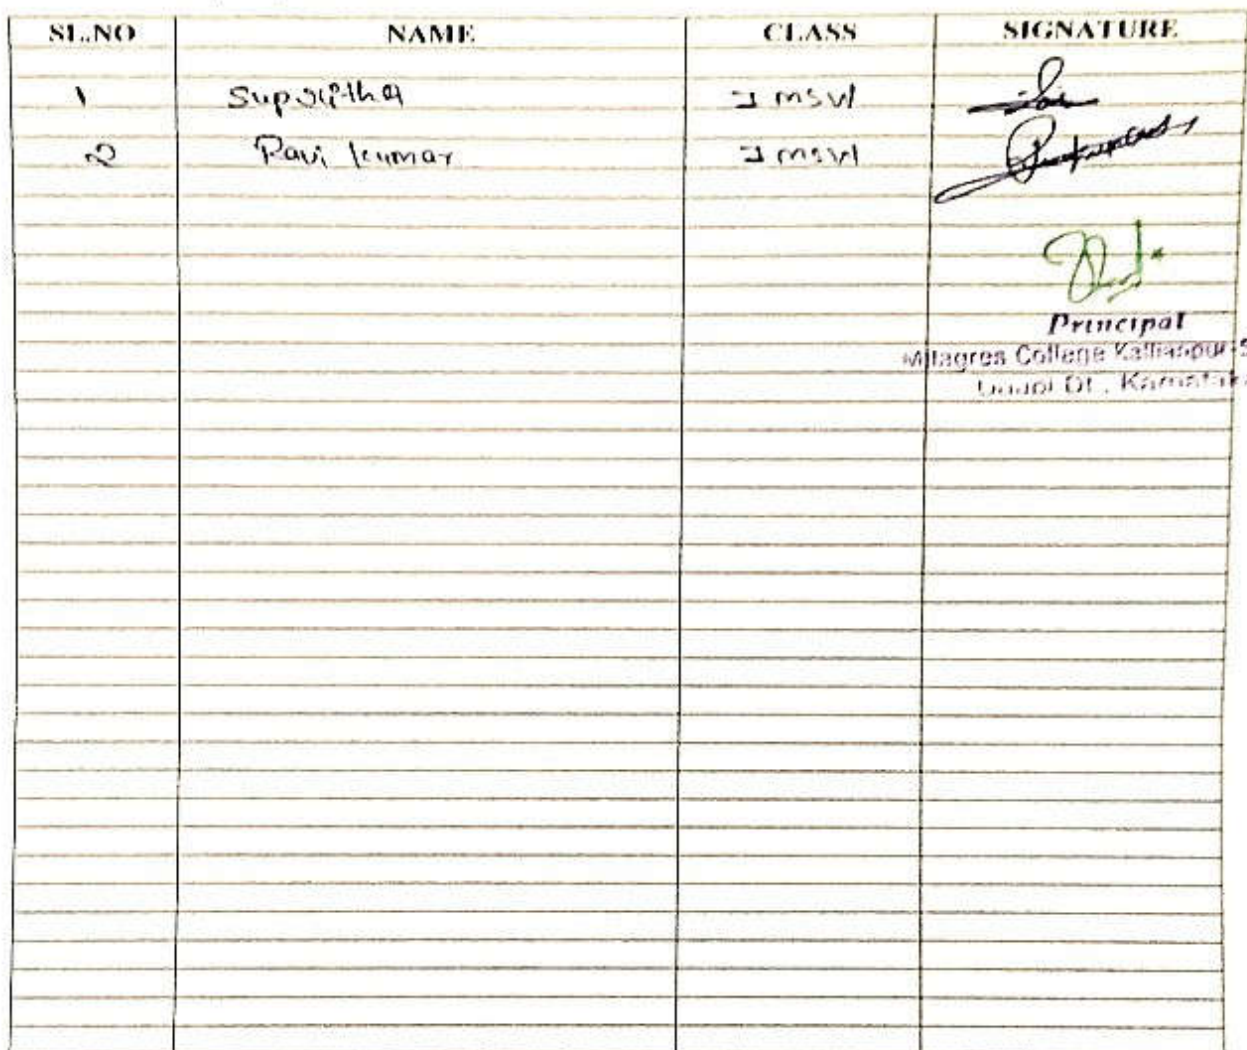 SL.NO NAME CLASS SIGNATURE
1 Supritha I MSW
2 Ravi Kumar I MSW
Principal
Milagres College Kallianpur-5
Udupi Dt., Karnataka